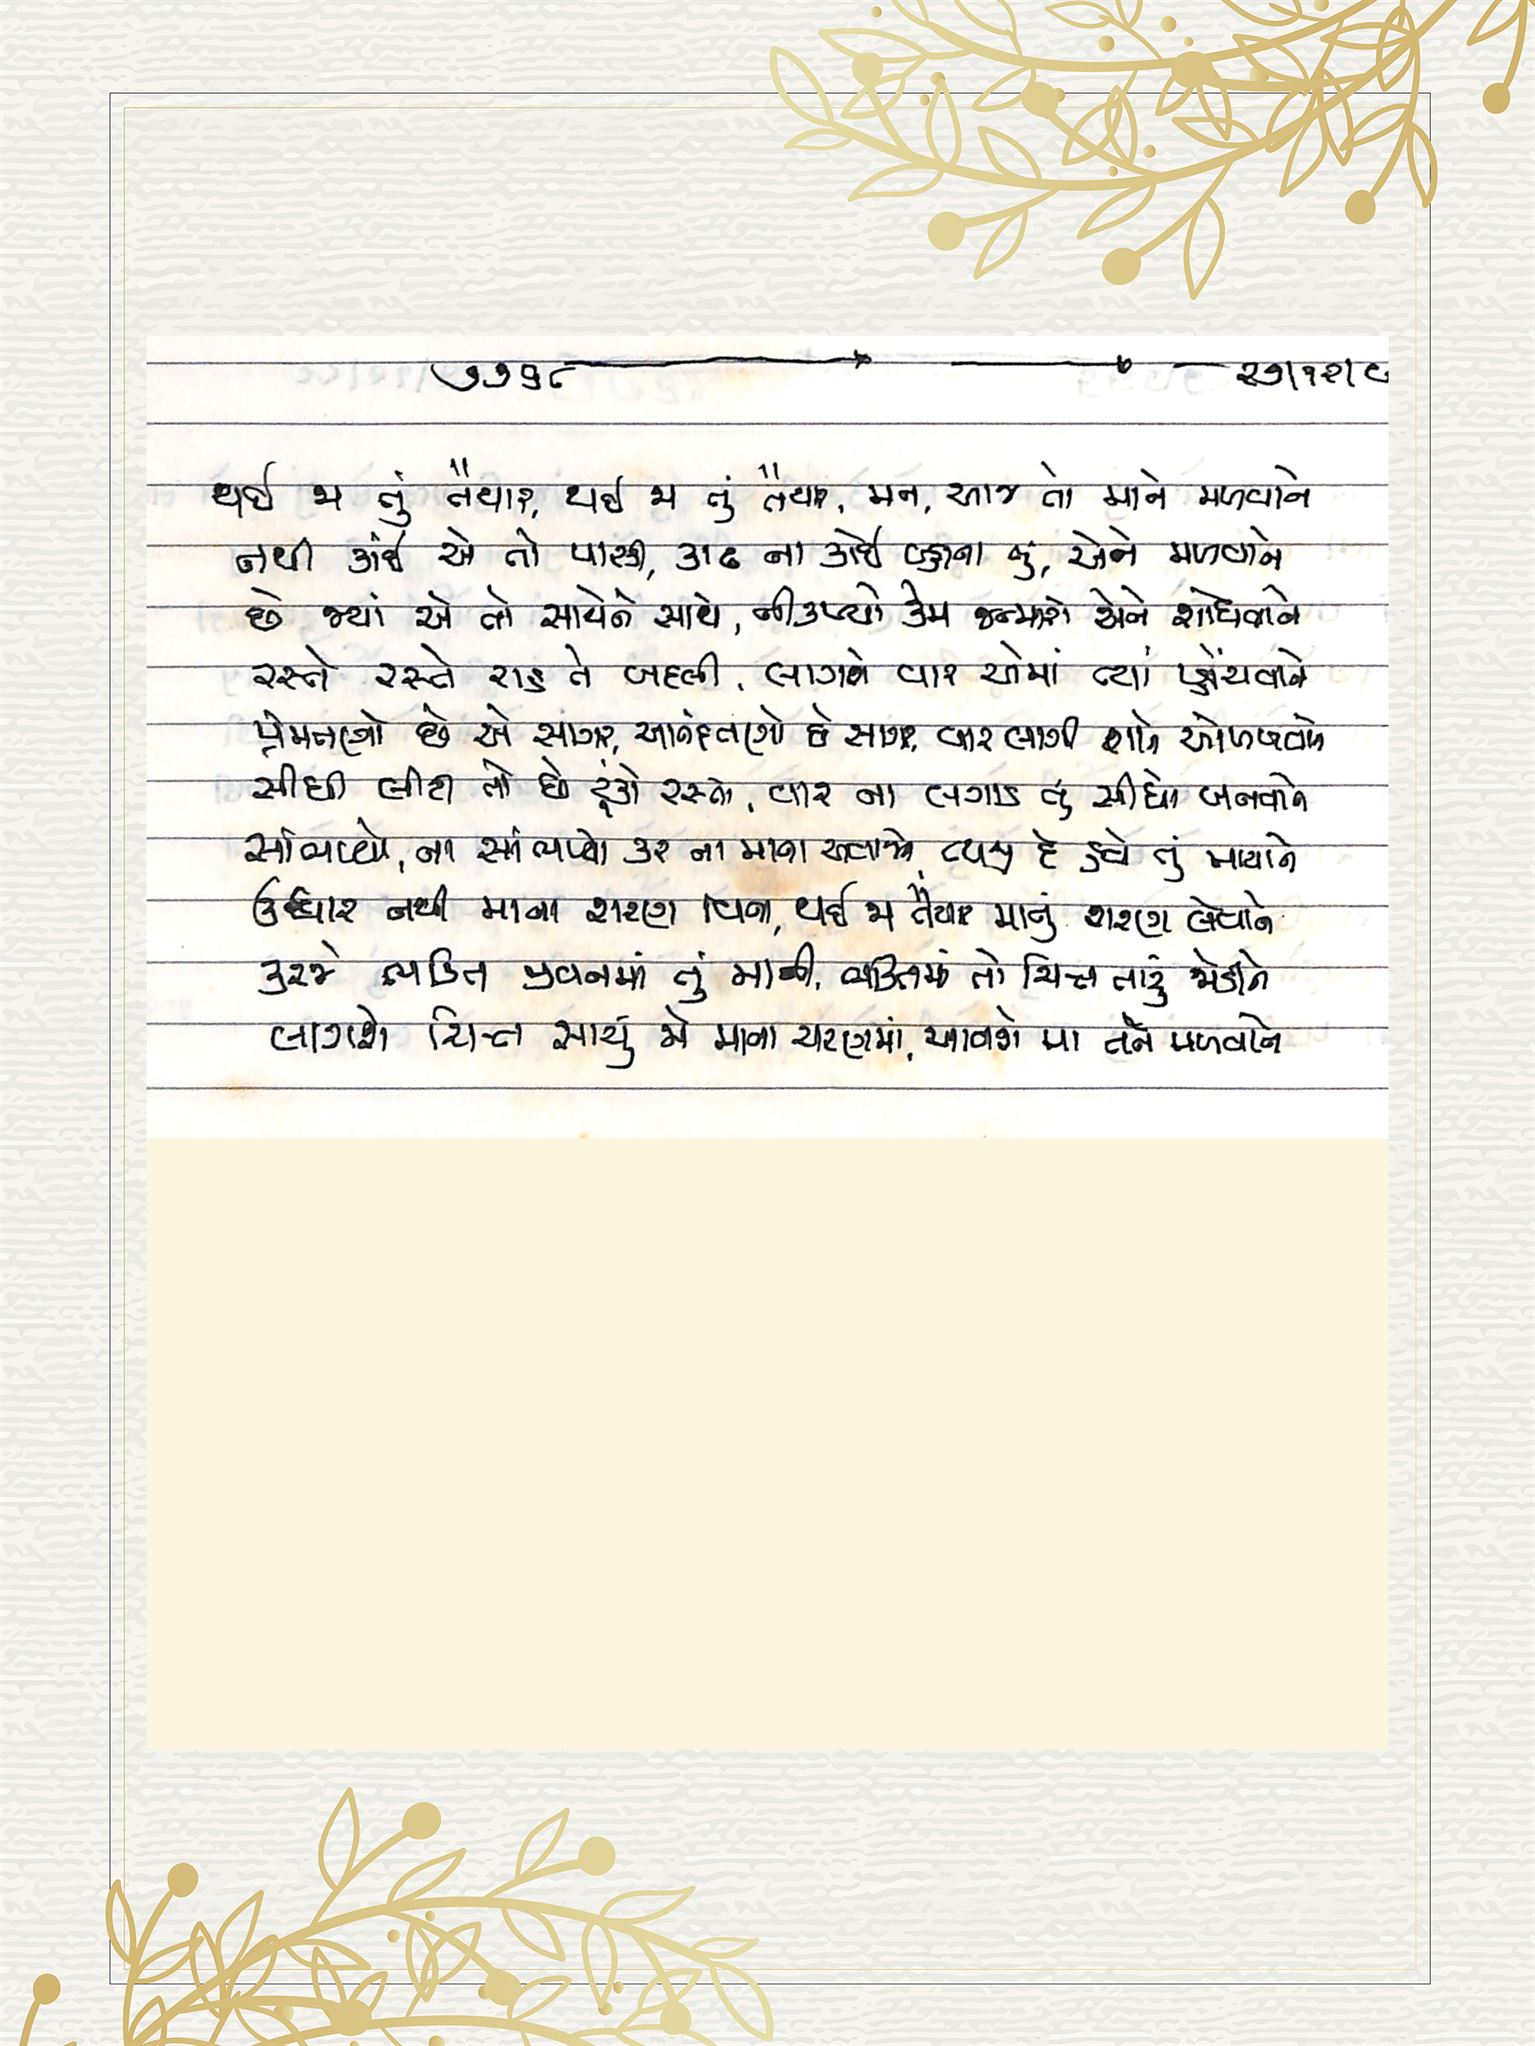 ૭૭૧૮ ૨૭।૧૨।૯
થઈ જા તું તૈયાર, થઈ જા તું તૈયાર, મન, આજ તો માને મળવાને
નથી કાંઈ એ તો પારકી, કાઢ ના કોઈ બ્હાના તું, એને મળવાને
છે જ્યાં એ તો સાથેને સાથે, નીકળ્યો કેમ જન્મારો એને શોધવાને
રસ્તે રસ્તે રાહ તે બદલી, લાગશે વાર એમાં ત્યાં પ્હોંચવાને
પ્રેમતણો છે એ સાગર, આનંદતણો છે સાગર, વાર લાગી શાને ઓળખવાને
સીધી લીટી તો છે ટૂંકો રસ્તો, વાર ના લગાડ તું સીધો બનવાને
સાંભળ્યો, ના સાંભળ્યો કર ના માના અવાજને, ત્યજી દે હવે તું માયાને
ઉદ્ધાર નથી માના શરણ વિના, થઈ જા તૈયાર માનું શરણ લેવાને
કરજે વ્યતિત જીવનમાં તું માની, ભક્તિમાં તો ચિત્ત તારું જોડીને
લાગશે ચિત્ત સાચું જો માના ચરણમાં, આવશે મા તને મળવાને